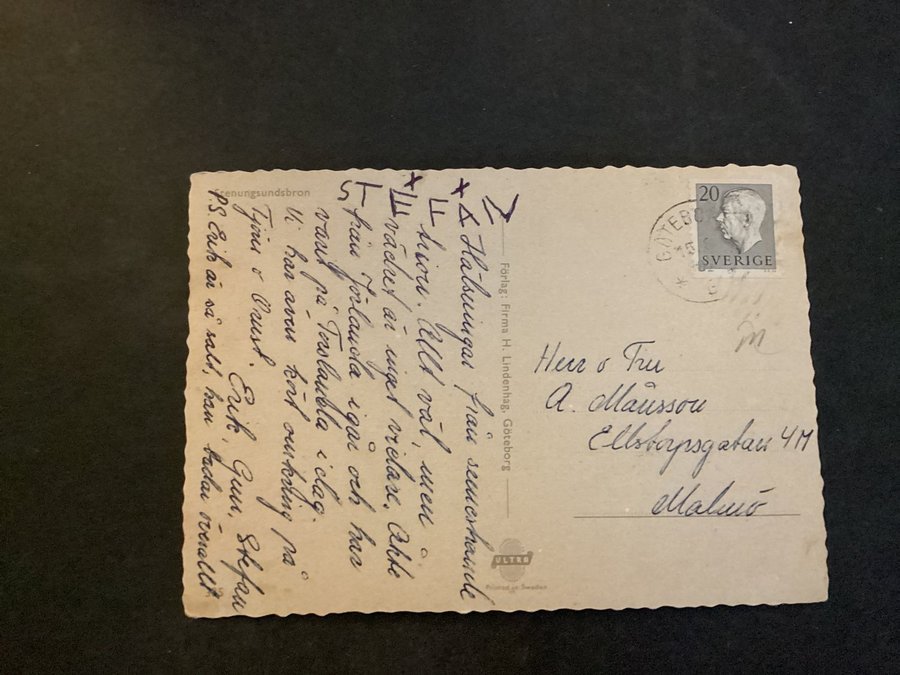 Stenungsundsbron
Hälsningar från semesterande
trion. Allt väl, men
vädret är inget vidare. Åkte
från Jörlanda igår och har
varit på Torslanda idag.
Vi har även kört omkring på
Tjörn o Orust. Erik, Gun, Stefan
P.S. Erik är så salt, han badar överallt.
Förlag: Firma H. Lindenhag, Göteborg
ULTRA
Printed in Sweden
20
SVERIGE
GÖTEBO
Herr o Fru
A. Månsson
Ellstorpsgatan 4M
Malmö